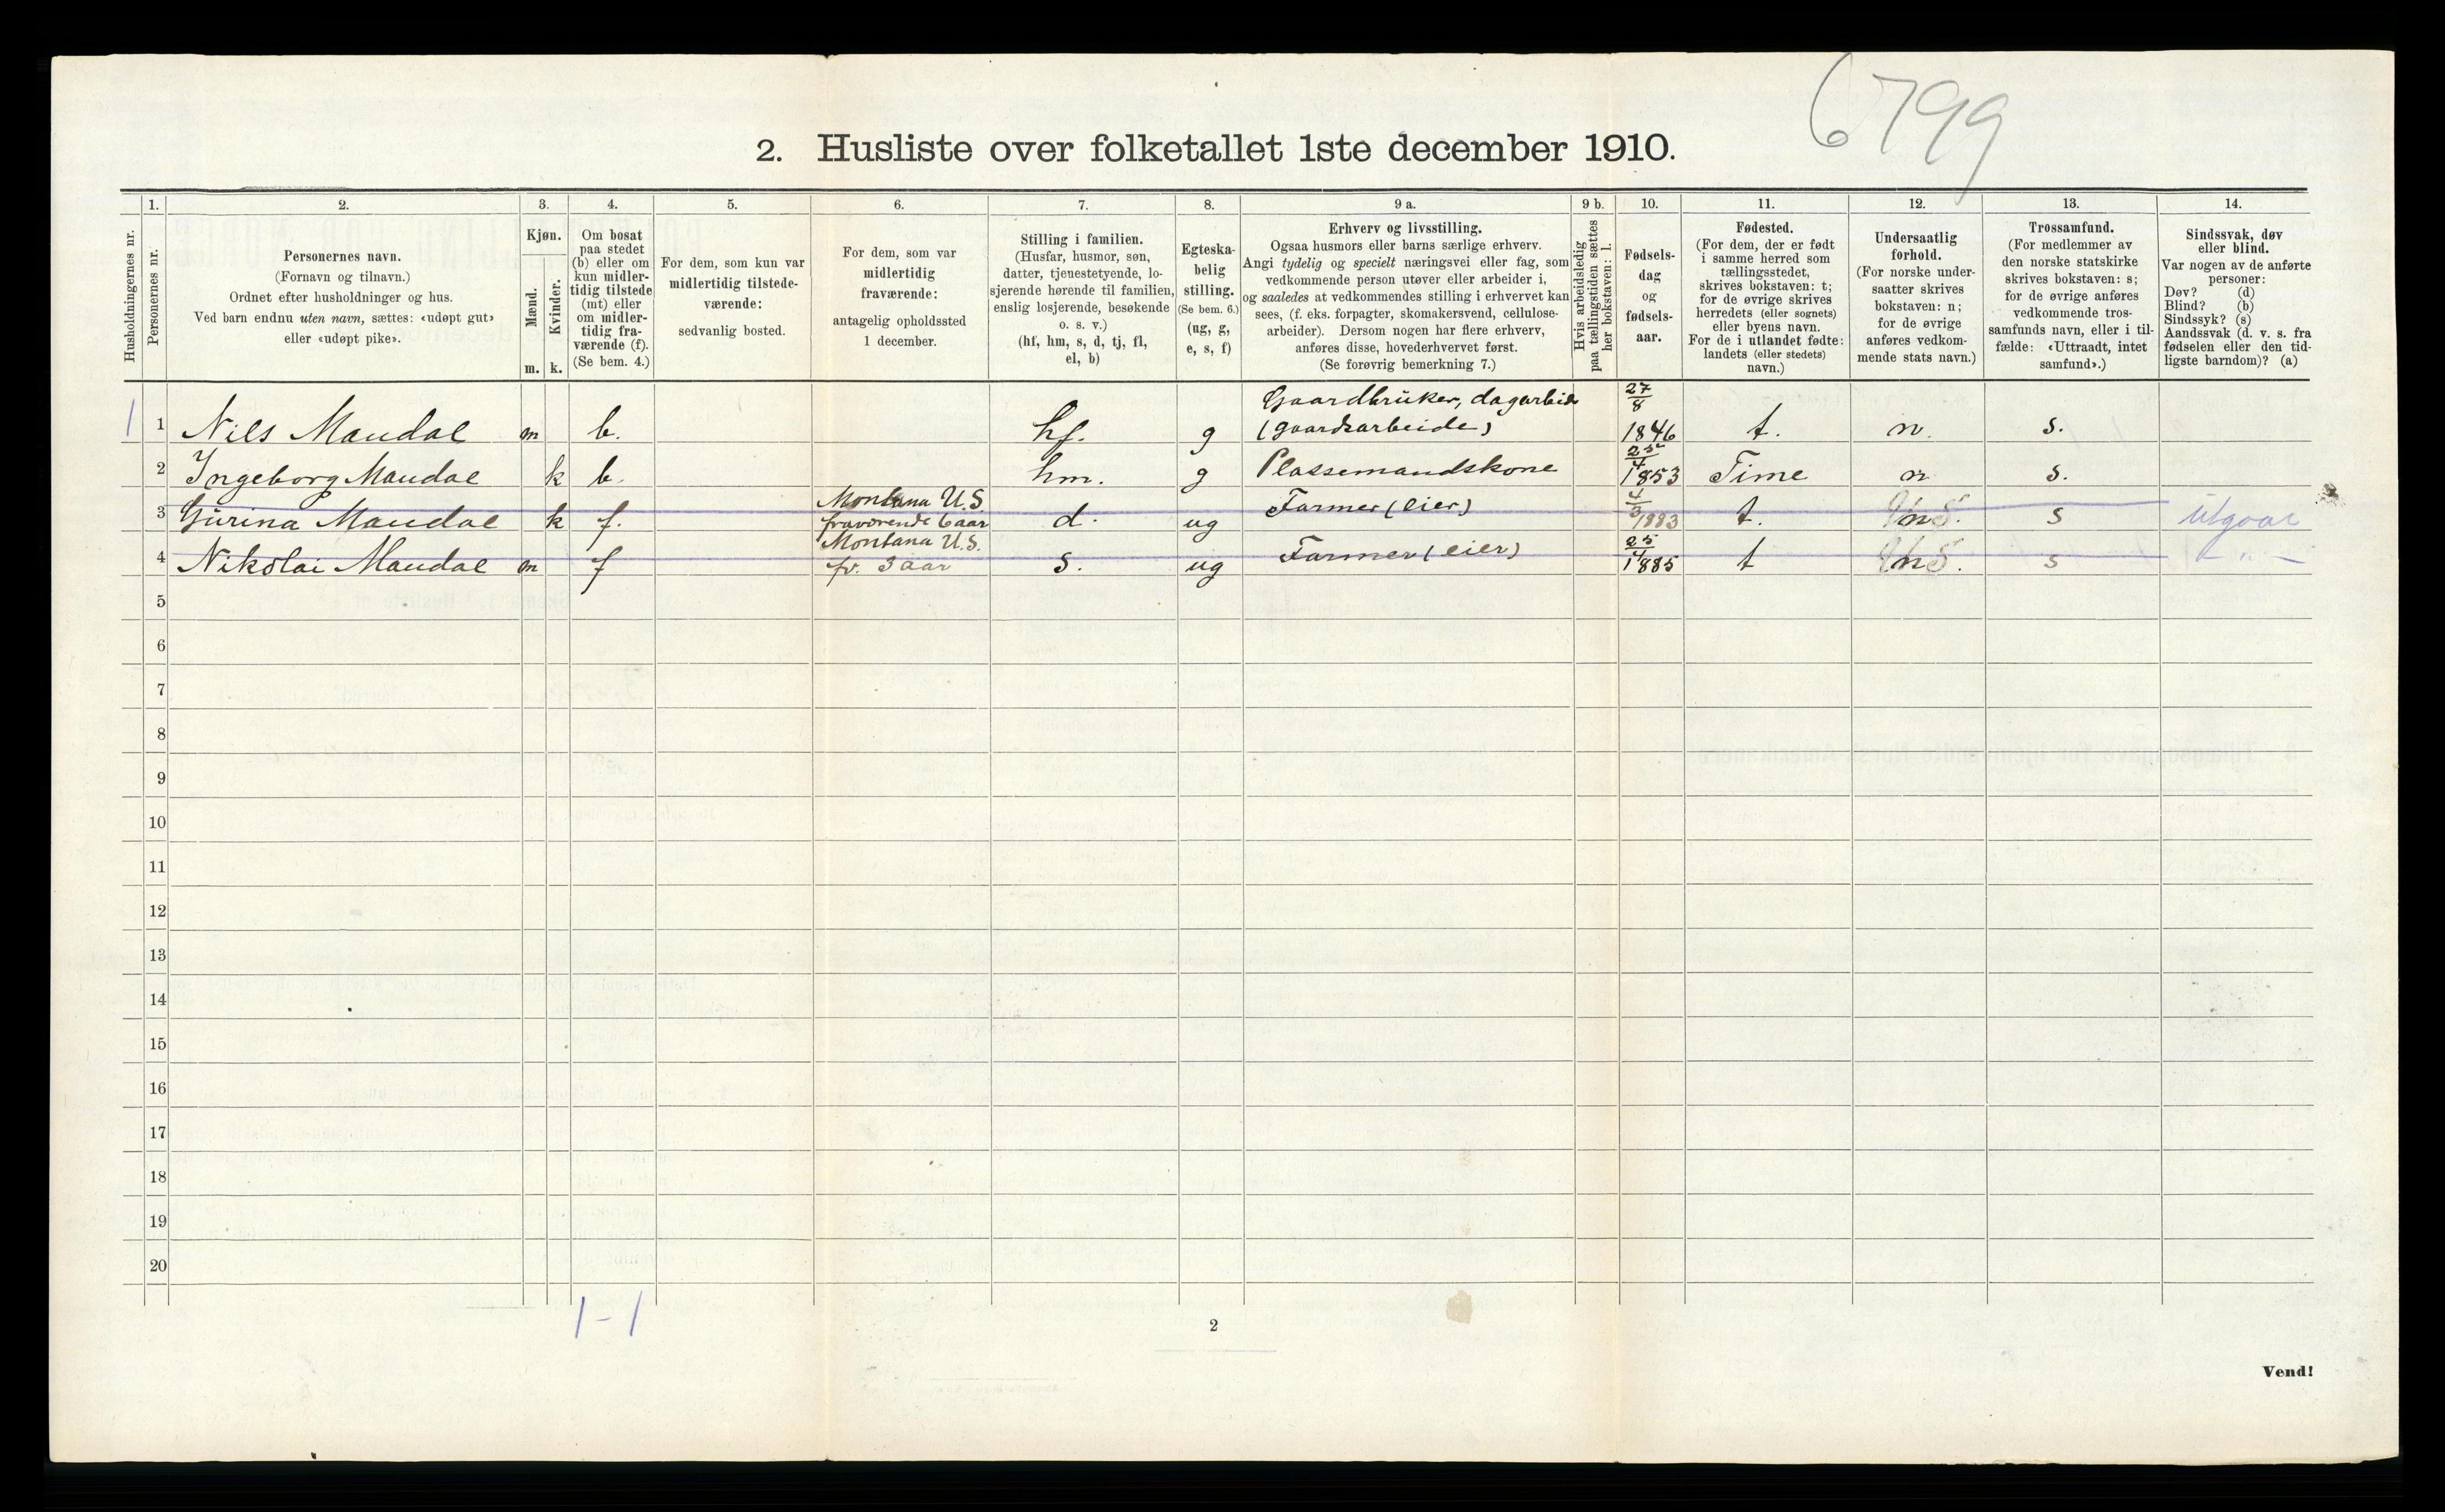 6799
2. Husliste over folketallet 1ste december 1910.
Husholdningernes nr.
1.
Personernes nr.
2.
Personernes navn.
(Fornavn og tilnavn.)
Ordnet efter husholdninger og hus.
Ved barn endnu uten navn, sættes: «udøpt gut»
eller «udøpt pike».
3.
Kjøn.
Mænd.
Kvinder.
m. k.
4.
Om bosat
paa stedet
(b) eller om
kun midler-
tidig tilstede
(mt) eller
om midler-
tidig fra-
værende (f).
(Se bem. 4.)
5.
For dem, som kun var
midlertidig tilstede-
værende:
sedvanlig bosted.
6.
For dem, som var
midlertidig
fraværende:
antagelig opholdssted
1 december.
7.
Stilling i familien.
(Husfar, husmor, søn,
datter, tjenestetyende, lo-
sjerende hørende til familien,
enslig losjerende, besøkende
o. s. v.)
(hf, hm, s, d, tj, fl,
el, b)
8.
Egteska-
belig
stilling.
(Se bem. 6.)
(ug, g,
e, s, f)
9 a.
Erhverv og livsstilling.
Ogsaa husmors eller barns særlige erhverv.
Angi tydelig og specielt næringsvei eller fag, som
vedkommende person utøver eller arbeider i,
og saaledes at vedkommendes stilling i erhvervet kan
sees, (f. eks. forpagter, skomakersvend, cellulose-
arbeider). Dersom nogen har flere erhverv,
anføres disse, hovederhvervet først.
(Se forøvrig bemerkning 7.)
9 b.
Hvis arbeidsledig
paa tællingstiden sættes
her bokstaven: l.
10.
Fødsels-
dag
og
fødsels-
aar.
11.
Fødested.
(For dem, der er født
i samme herred som
tællingsstedet,
skrives bokstaven: t;
for de øvrige skrives
herredets (eller sognets)
eller byens navn.
For de i utlandet fødte:
landets (eller stedets)
navn.)
12.
Undersaatlig
forhold.
(For norske under-
saatter skrives
bokstaven: n;
for de øvrige
anføres vedkom-
mende stats navn.)
13.
Trossamfund.
(For medlemmer av
den norske statskirke
skrives bokstaven: s;
for de øvrige anføres
vedkommende tros-
samfunds navn, eller i til-
fælde: «Uttraadt, intet
samfund».)
14.
Sindssvak, døv
eller blind.
Var nogen av de anførte
personer:
Døv? (d)
Blind? (b)
Sindssyk? (s)
Aandssvak (d. v. s. fra
fødselen eller den tid-
ligste barndom)? (a)
1 1 Nils Maudal m b. hf. g Gaardbruker, dagarbeid (gaardsarbeide) 27/8 1846 t. n. s.
2 Ingeborg Maudal k b. hm. g Plassemandskone 25/4 1853 Time n s.
3 Gurina Maudal k f. Montana U.S. fraværende 6 aar d. ug Farmer (eier) 4/3 1883 t. n s utgaar
4 Nikolai Maudal m f Montana U.S. fr. 3 aar s. ug Farmer (eier) 25/4 1885 t n s — " —
5
6
7
8
9
10
11
12
13
14
15
16
17
18
19
20
1-1
2
Vend!